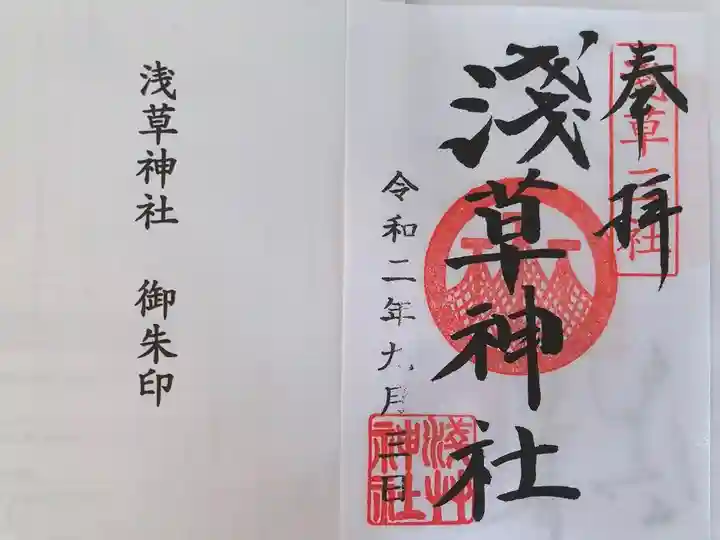 浅草神社 御朱印
奉拝
浅草三社
淺草神社
令和二年九月三日
淺艸神社